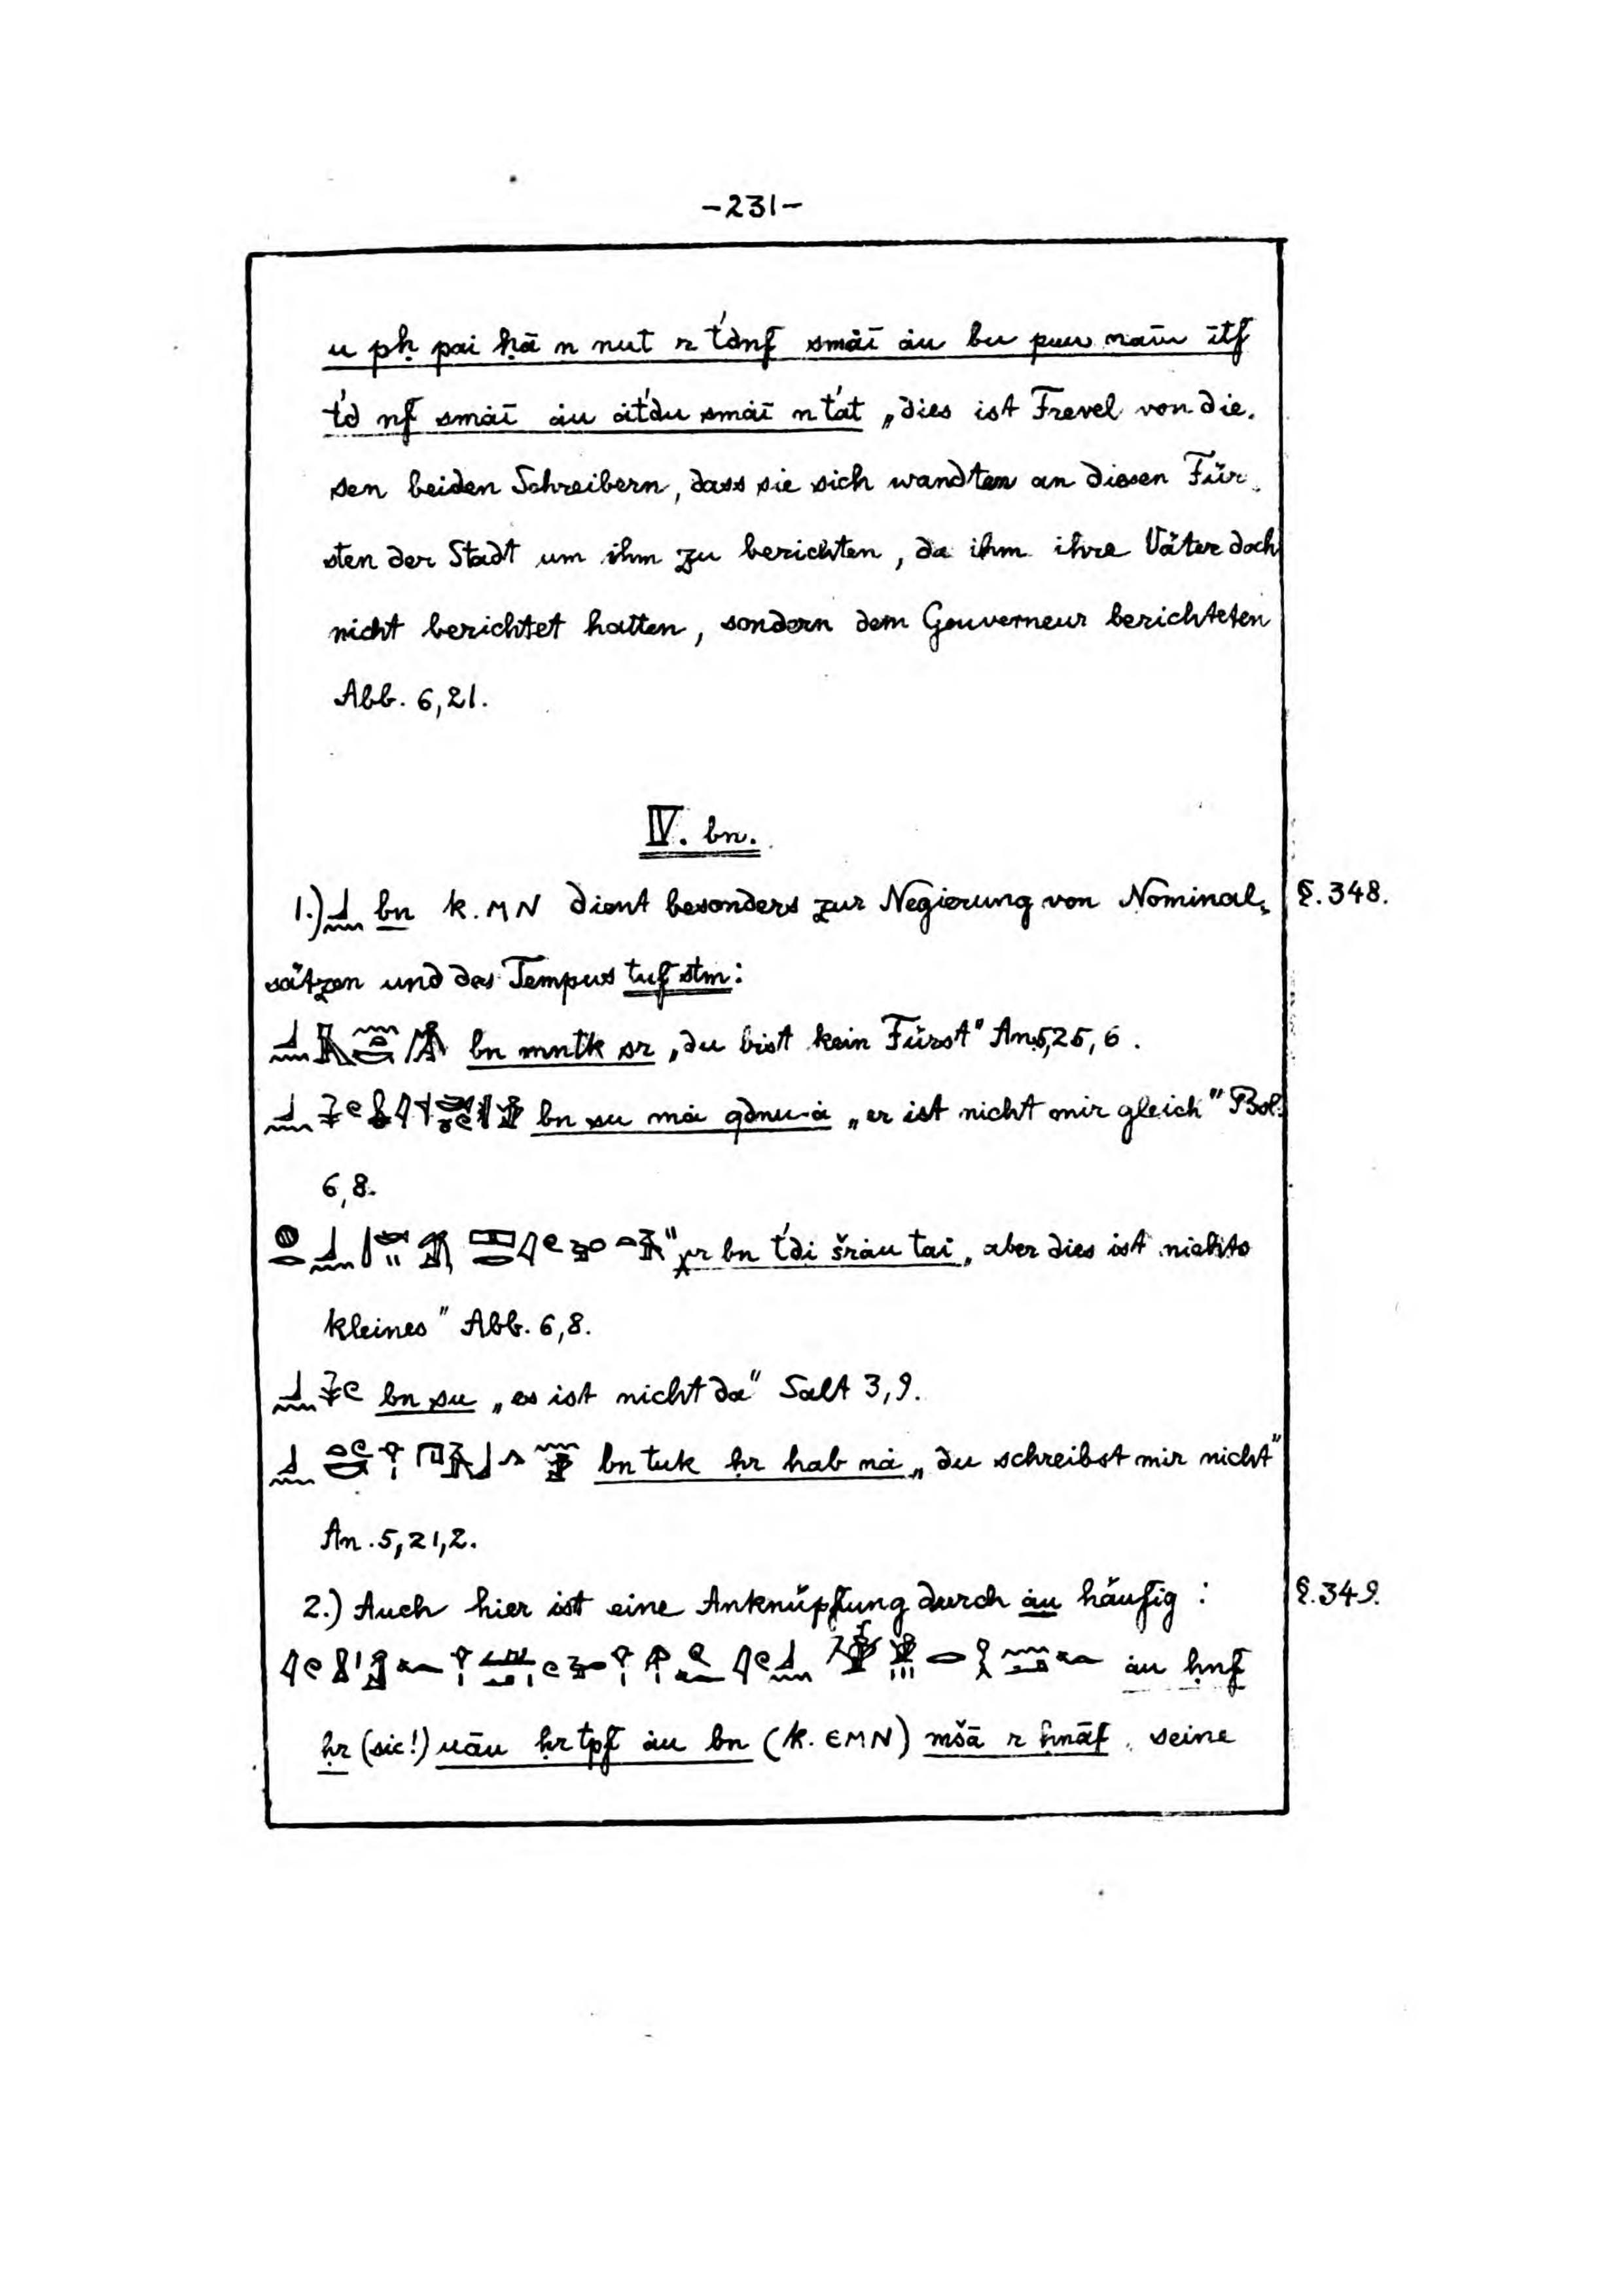 -231-
u pḥ pai ḥā n nut r t́dnf smȧī ȧu bu puu naīu ītf
t́d nf smȧī ȧu ȧt́du smȧī n t́at „dies ist Frevel von die-
sen beiden Schreibern, dass sie sich wandten an diesen Für-
sten der Stadt um ihm zu berichten, da ihm ihre Väter doch
nicht berichtet hatten, sondern dem Gouverneur berichteten
Abb. 6,21.
IV. bn.
1.) bn k. MN dient besonders zur Negierung von Nominal- §. 348.
sätzen und des Tempus tuf stm:
bn mntk sr „du bist kein Fürst" An. 5,25,6.
bn su mȧ qdnu-ȧ „er ist nicht mir gleich" Bol.
6,8.
χr bn t́di šrȧu tai „aber dies ist nichts
kleines" Abb. 6,8.
bn su „es ist nicht da" Salt 3,9.
bn tuk ḥr hab nȧ „du schreibst mir nicht"
An. 5,21,2.
2.) Auch hier ist eine Anknüpfung durch ȧu häufig: §. 349.
ȧu ḥnf
ḥr (sic!) uāu ḥr tpf ȧu bn (k. ЄMN) mšā r ḥnāf „seine